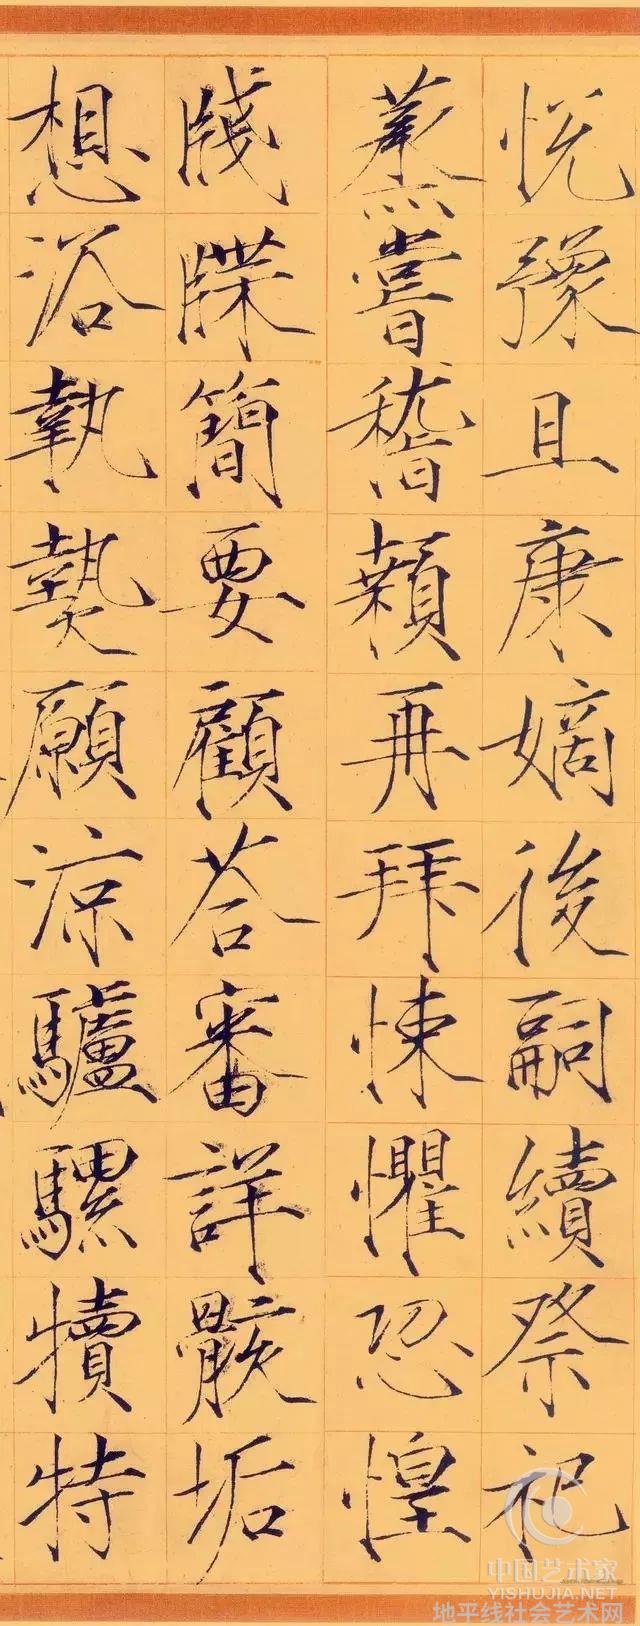 悦豫且康嫡後嗣續祭祀
蒸嘗稽顙再拜悚懼恐惶
牋牒簡要顧荅審詳骸垢
想浴執熱願涼驢騾犢特
中国艺术家
YISHUJIA.NET
地平线社会艺术网